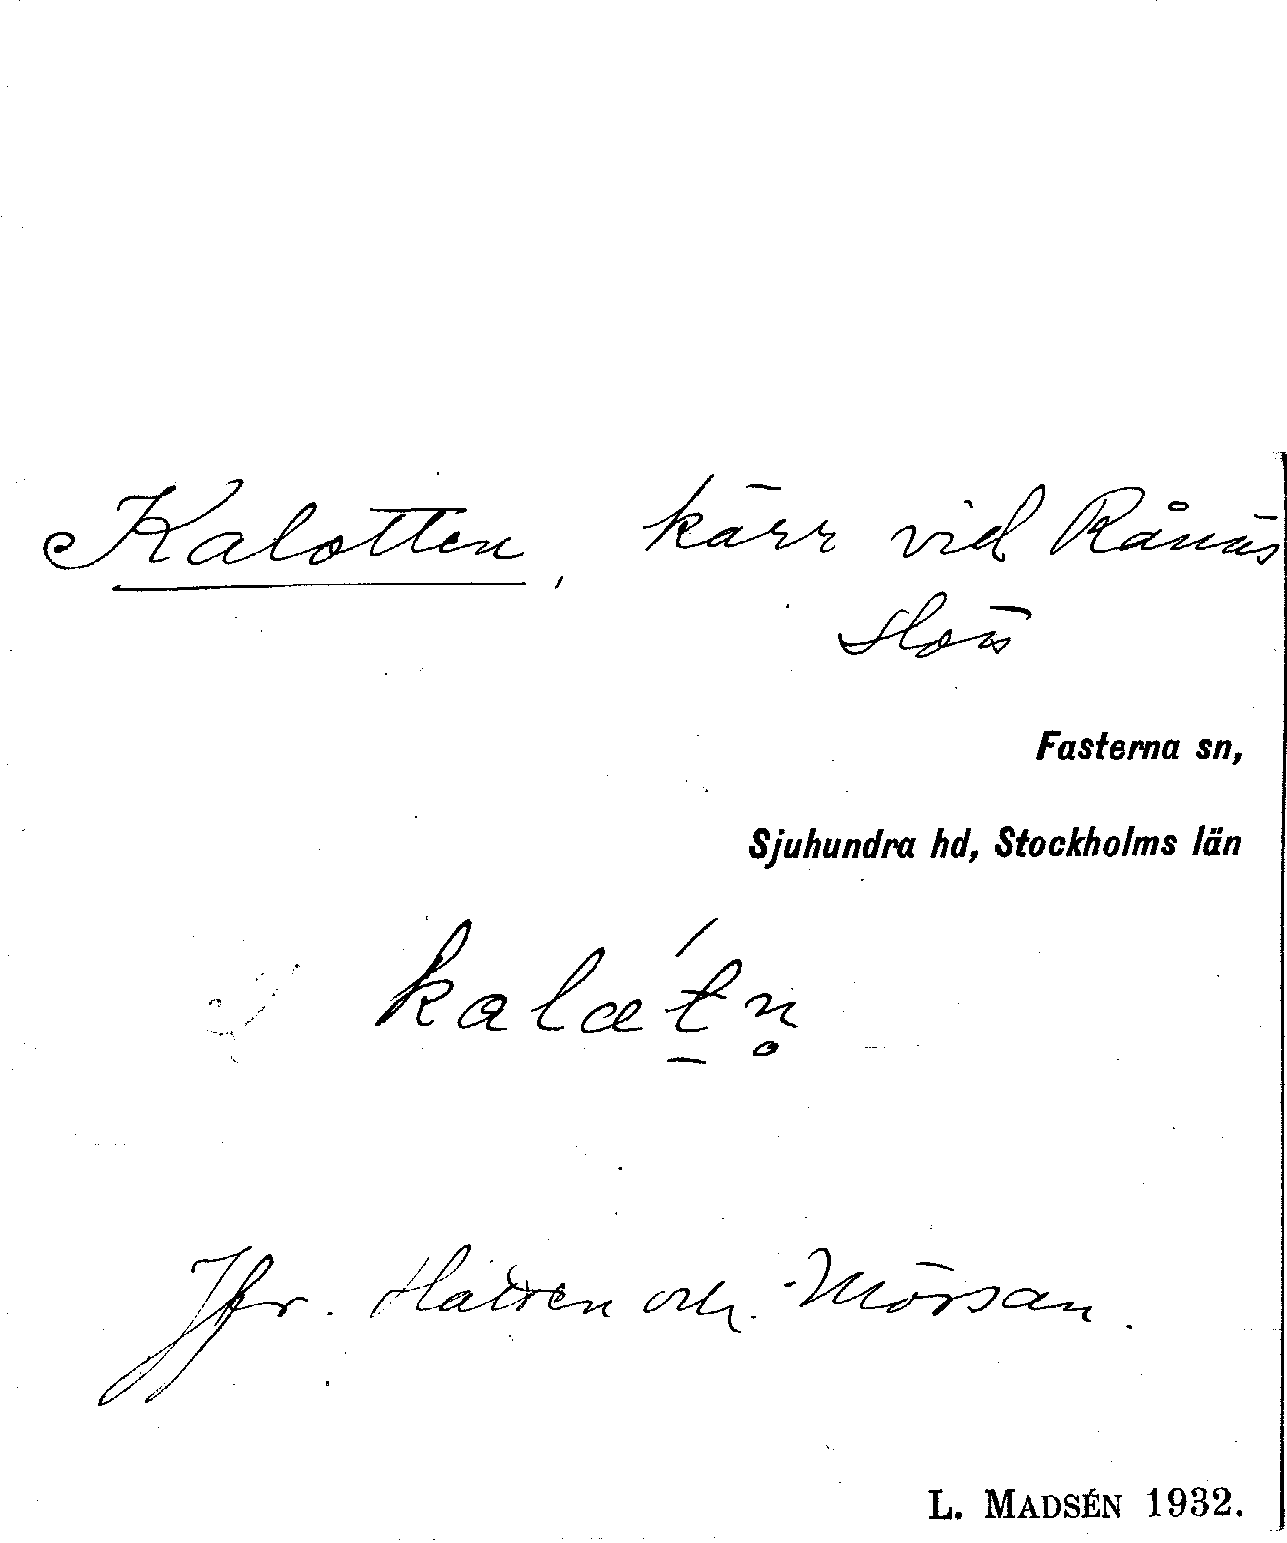 Kalotten, kärr vid Rånäs
slott
Fasterna sn,
Sjuhundra hd, Stockholms län
Jfr. Hatten och Mössan.
L. MADSÉN 1932.